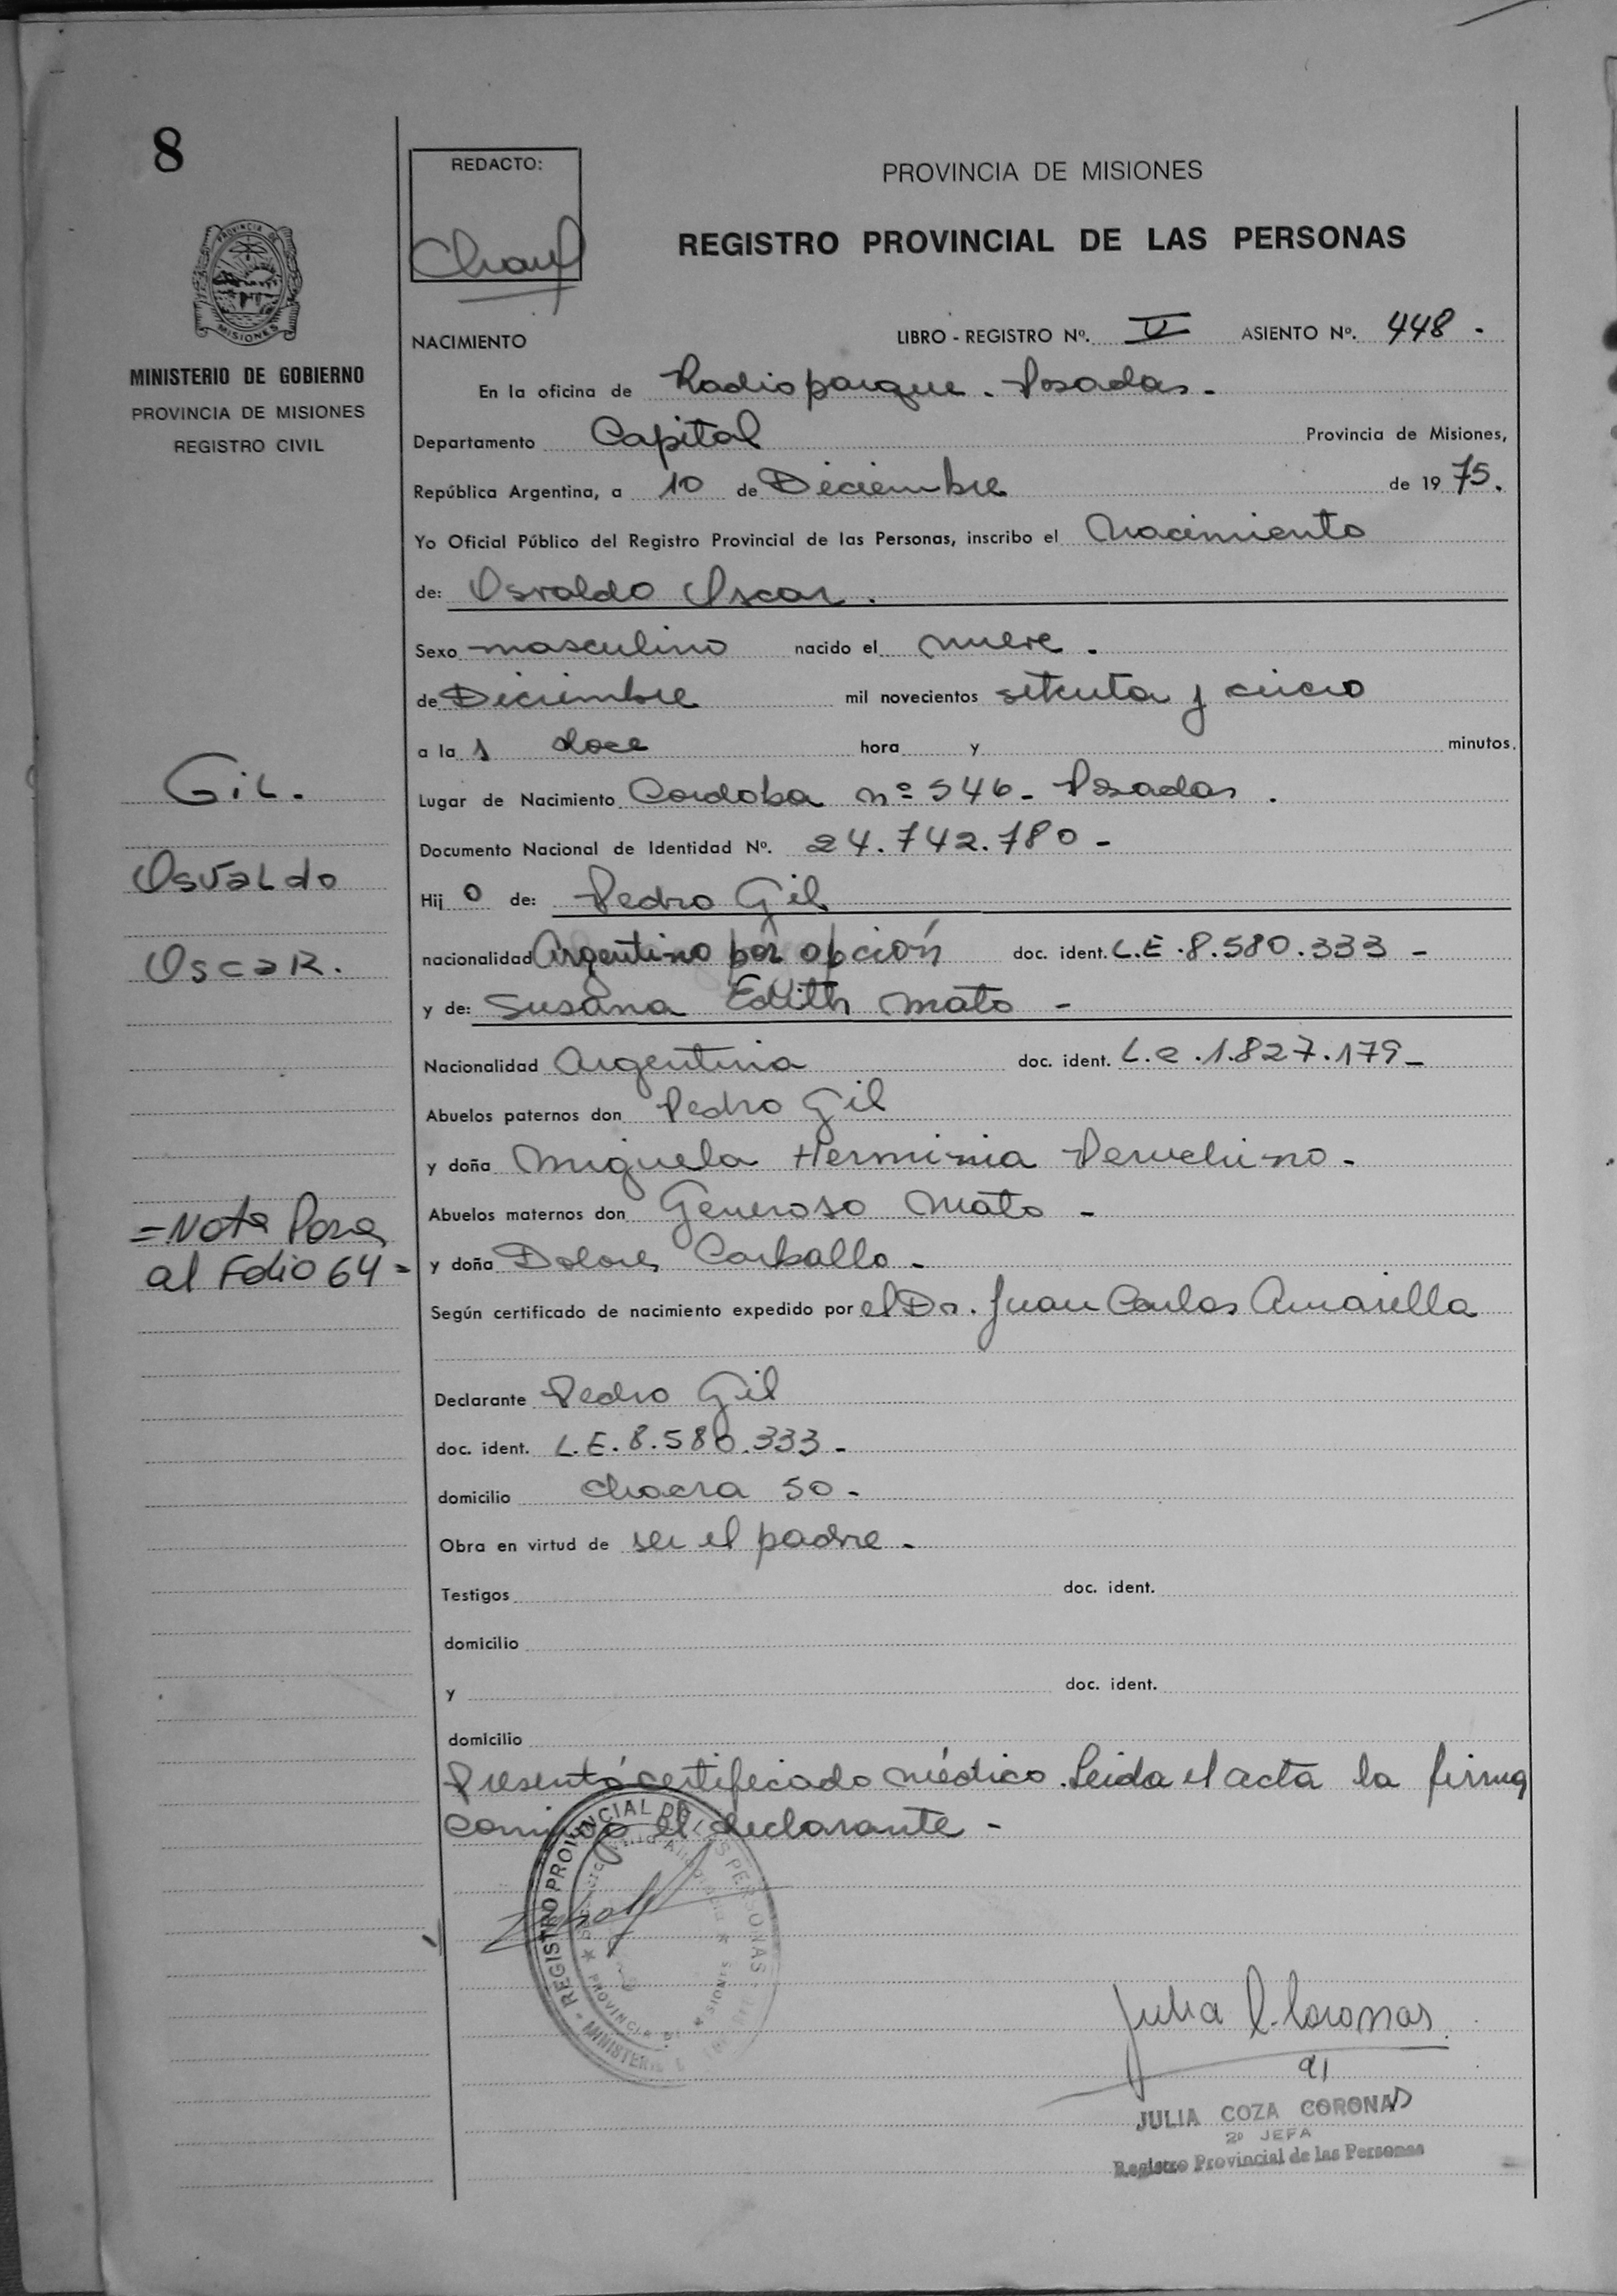 8
REDACTO:
PROVINCIA DE MISIONES
REGISTRO PROVINCIAL DE LAS PERSONAS
PROVINCIA DE
MISIONES
MINISTERIO DE GOBIERNO
PROVINCIA DE MISIONES
REGISTRO CIVIL
NACIMIENTO LIBRO - REGISTRO Nº. ASIENTO Nº. 448.
En la oficina de Radioparque. Posadas.
Departamento Capital Provincia de Misiones,
República Argentina, a 10 de Diciembre de 1975.
Yo Oficial Público del Registro Provincial de las Personas, inscribo el Nacimiento
de: Osvaldo Oscar.
Sexo masculino nacido el nueve.
de Diciembre mil novecientos setenta y cinco
a las doce hora y minutos.
Gil. Lugar de Nacimiento Cordoba nº 546 - Posadas.
Documento Nacional de Identidad Nº. 24.742.780 -
Osvaldo
Hijo de: Pedro Gil
Oscar.
nacionalidad Argentino por opción doc. ident. L.E. 8.580.333 -
y de: Susana Edith Mato -
Nacionalidad Argentina doc. ident. L.C. 1.827.179 -
Abuelos paternos don Pedro Gil
y doña Miguela Herminia Peruchino -
=Nota Pasa
Abuelos maternos don Generoso Mato -
al Folio 64=
y doña Dolores Carballo -
Según certificado de nacimiento expedido por el Dr. Juan Carlos Amarilla
Declarante Pedro Gil
doc. ident. L.E. 8.580.333 -
domicilio chacra 50 -
Obra en virtud de ser el padre -
Testigos doc. ident.
domicilio
y doc. ident.
domicilio
Presentó certificado médico. Leida el acta la firma
conmigo el declarante -
REGISTRO PROVINCIAL DE LAS PERSONAS - MINISTERIO
PROVINCIA DE MISIONES
Julia C. Coronas
JULIA COZA CORONAS
2º JEFA
Registro Provincial de las Personas